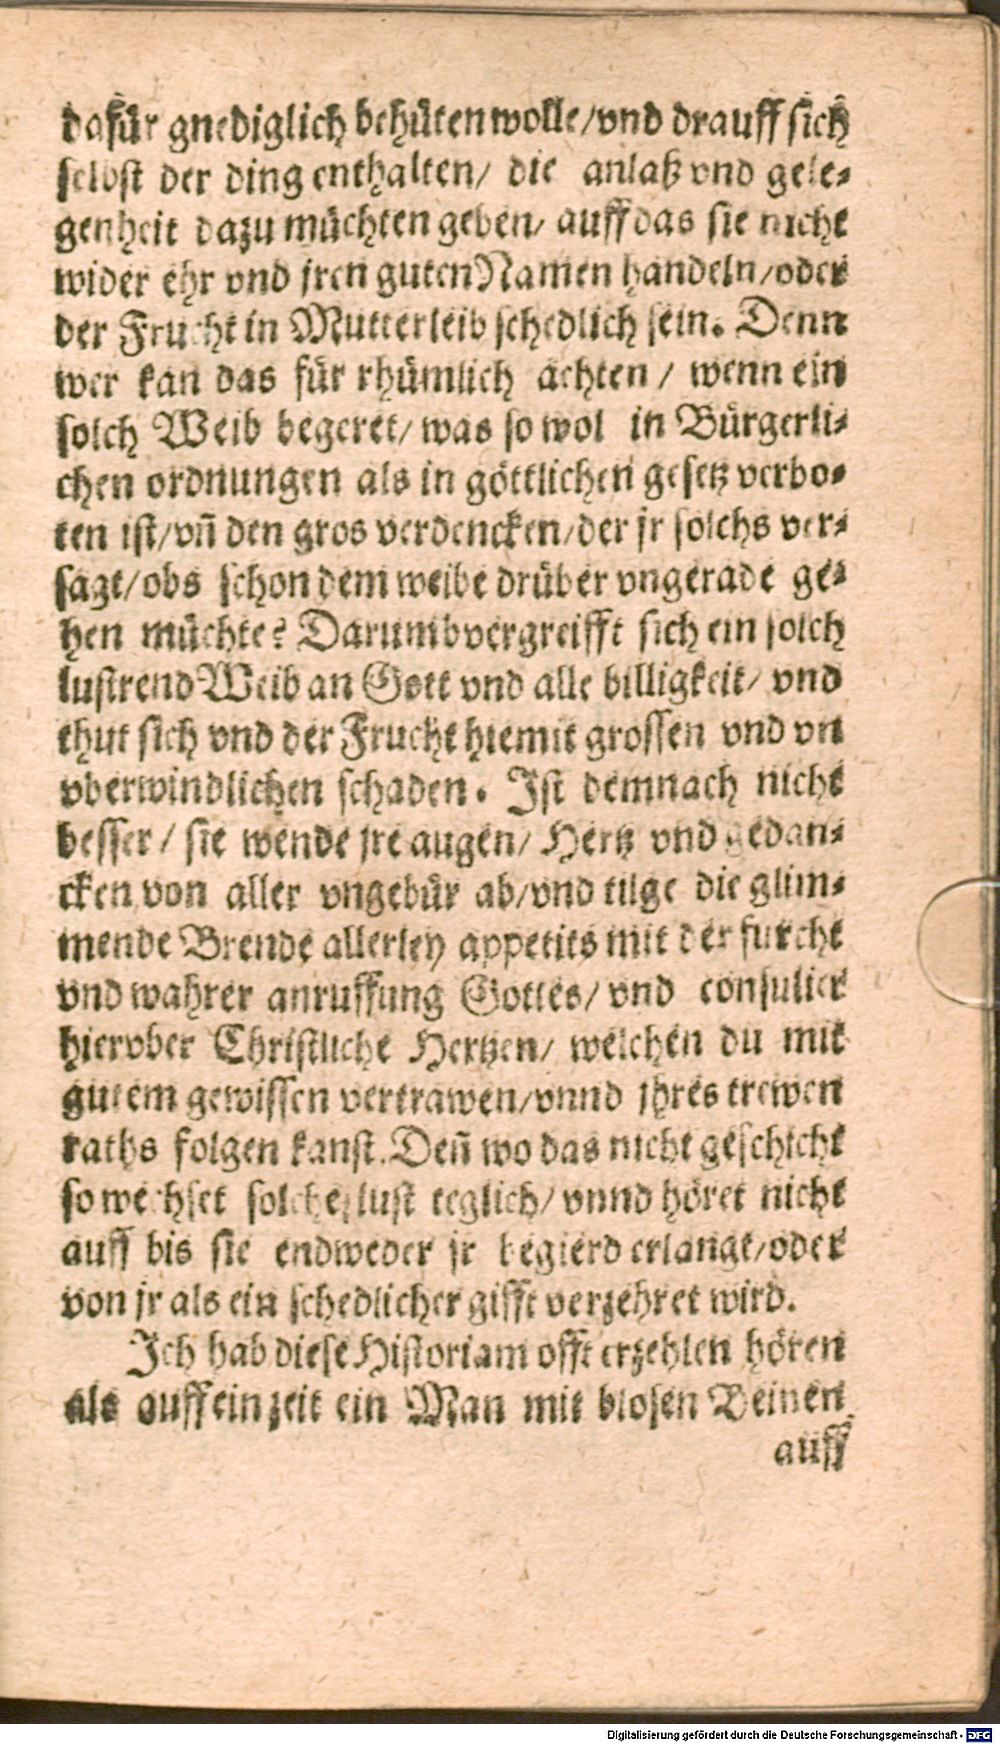 dafür gnediglich behüten wolle/vnd drauff sich
selbst der ding enthalten/ die anlaß vnd gele-
genheit dazu müchten geben/ auff das sie nicht
wider ehr vnd jren guten Namen handeln/oder
der Frucht in Mutterleib schedlich sein. Denn
wer kan das für rhümlich achten / wenn ein
solch Weib begeret/ was so wol in Bürgerli-
chen ordnungen als in göttlichen gesetz verbo-
ten ist/vn̄ den gros verdencken/der jr solchs ver-
sagt/obs schon dem weibe drüber vngerade ge-
hen müchte? Darumb vergreifft sich ein solch
lustrend Weib an Gott vnd alle billigkeit/ vnd
thut sich vnd der Frucht hiemit grossen vnd vn
vberwindlichen schaden. Ist demnach nicht
besser / sie wende jre augen/ Hertz vnd gedan-
cken von aller vngebür ab/vnd tilge die glim-
mende Brende allerley appetits mit der furcht
vnd wahrer anruffung Gottes/ vnd consulier
hierober Christliche Hertzen/ welchen du mit
gutem gewissen vertrawen/vnnd jhres trewen
raths folgen kanst. Den̄ wo das nicht geschicht
so wechset solche lust teglich/ vnnd höret nicht
auff bis sie endweder jr begierd erlangt/oder
von jr als ein schedlicher gifft verzehret wird.
Ich hab diese Historiam offt erzehlen hören
als auff ein zeit ein Man mit blosen Beinen
auff
Digitalisierung gefördert durch die Deutsche Forschungsgemeinschaft - DFG